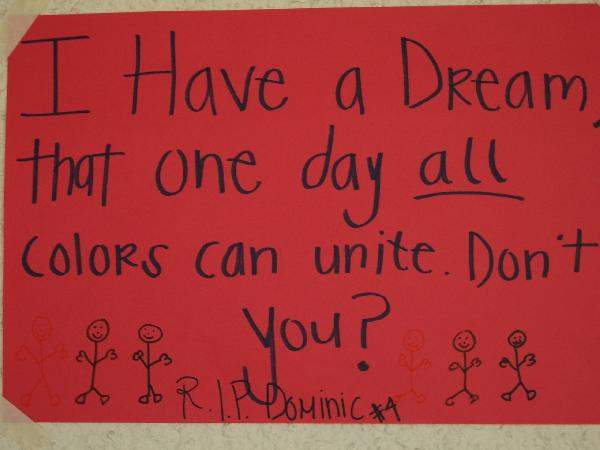 I Have a Dream,
that one day all
colors can unite. Don't
you?
R.I.P. Dominic #4